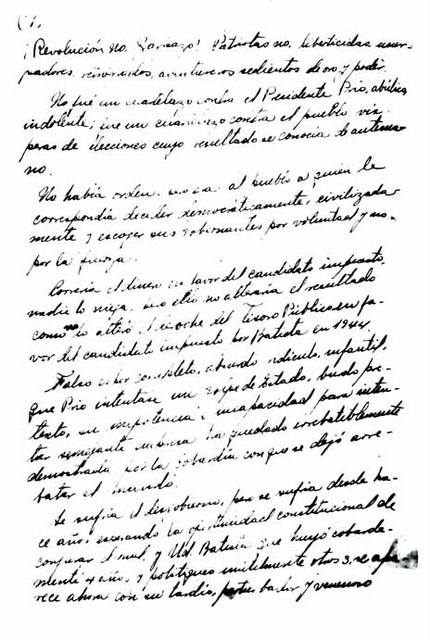 (1)
¡Revolución no, Zarpazo! Patriotas no, liberticidas, usur-
padores, retrógrados, aventureros sedientos de oro y poder.
No fué un cuartelazo contra el Presidente Prío, abúlico,
indolente; fué un cuartelazo contra el pueblo, vís-
peras de elecciones cuyo resultado se conocía de antema-
no.
No había orden, pero era al pueblo a quien le
correspondía decidir democráticamente, civilizada-
mente y escoger sus gobernantes por voluntad y no
por la fuerza.
Correría el dinero en favor del candidato impuesto,
nadie lo niega, pero ello no alteraría el resultado
como no lo alteró el derroche del Tesoro Público en fa-
vor del candidato impuesto por Batista en 1944.
Falso es por completo, absurdo, ridículo, infantil,
que Prío intentase un golpe de Estado, burdo pre-
texto, su impotencia e incapacidad para inten-
tar semejante empresa ha quedado irrebatiblemente
demostrada por la cobardía con que se dejó arre-
batar el mando.
Se sufría el desgobierno, pero se sufría desde ha-
ce años esperando la oportunidad constitucional de
conjurar el mal, y Ud. Batista que huyó cobarde-
mente 4 años y politiqueó inútilmente otros 3, se apa-
rece ahora con su tardío, perturbador y venenoso